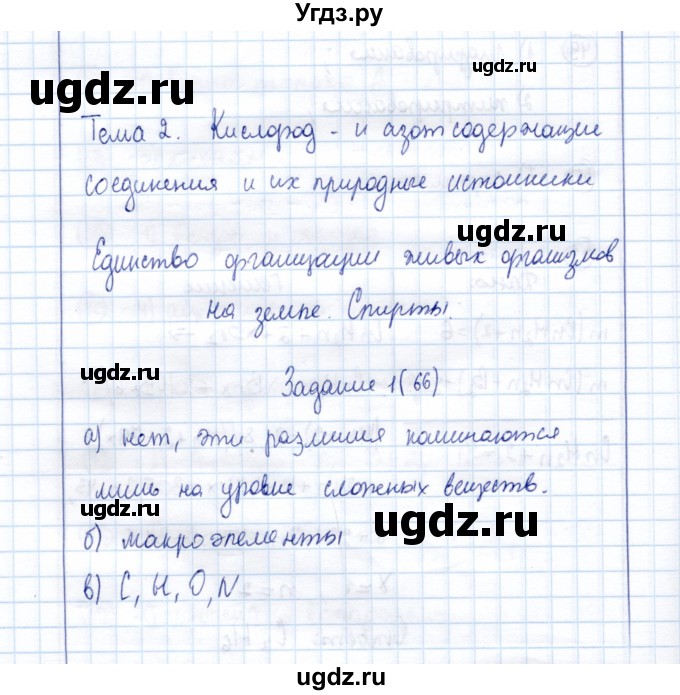 Угдз.ру
ugdz.ru
ugdz.ru
Тема 2. Кислород - и азотсодержащие
соединения и их природные источники
ugdz.ru
Единство организации живых организмов
на земле. Спирты.
ugdz.ru
Задание 1(66)
а) нет, эти различия начинаются
лишь на уровне сложных веществ.
ugdz.ru
ugdz.ru
б) макроэлементы
в) C, H, O, N
ugdz.ru
ugdz.ru
ugdz.ru